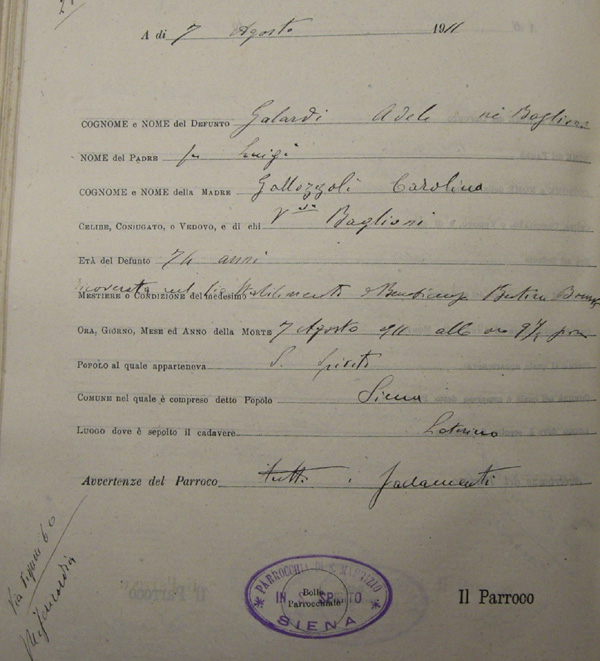 A dì 7 Agosto 1911
COGNOME e NOME del Defunto Galardi Adele ne' Baglioni
NOME del Padre fu Luigi
COGNOME e NOME della Madre Gallozzoli Carolina
Celibe, Coniugato, o Vedovo, e di chi Vva Baglioni
Età del Defunto 74 anni
Mestiere o Condizione del medesimo ricoverata nel Stabilimenti
Ora, Giorno, Mese ed Anno della Morte 7 Agosto 911 alle ore 9½ pom
Popolo al quale apparteneva S. Spirito
Comune nel quale è compreso detto Popolo Siena
Luogo dove è sepolto il cadavere Laterino
Avvertenze del Parroco tutti i
PARROCCHIA DI S. MAURIZIO
IN S. SPIRITO
Bollo
Parrocchiale
SIENA
Il Parroco